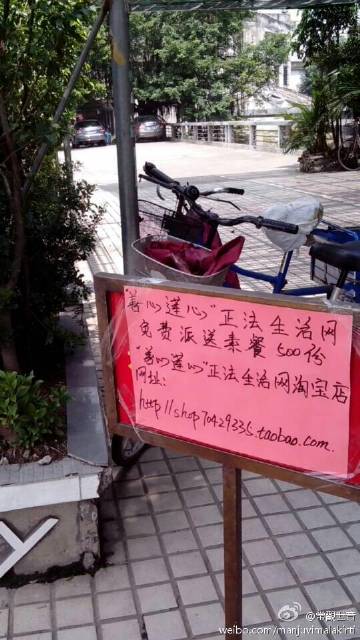 "善心莲心"正法生活网
免费派送素餐500份
"善心莲心"正法生活网淘宝店
网址:
http://shop70429335.taobao.com.
Y
@常觀世音
weibo.com/manjuvimalakirti